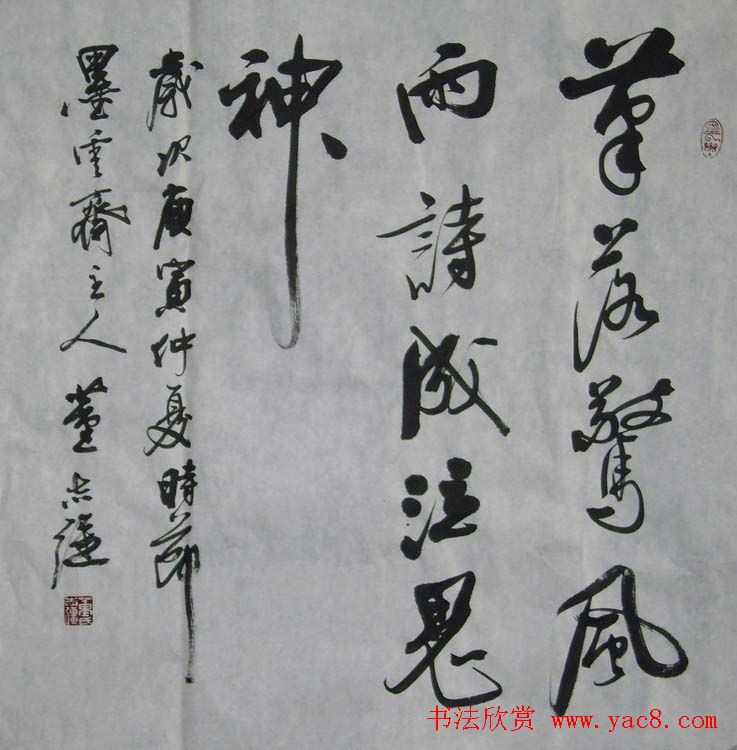 筆落驚風
雨詩成泣鬼
神
歲次庚寅仲夏時節
墨雲齋主人 董志
书法欣赏 www.yac8.com